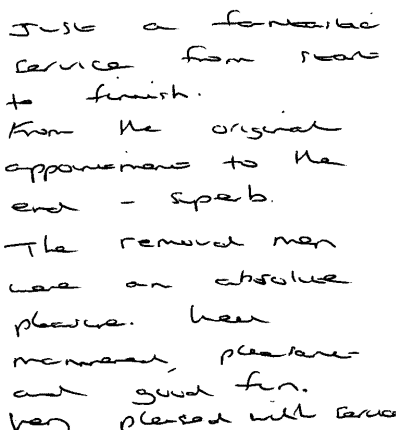 Just a fantastic
service from start
to finnish.
From the original
appointment to the
end - superb.
The removal men
were an absolute
pleasure. Well
mannered, pleasant
and good fun.
Very pleased with service